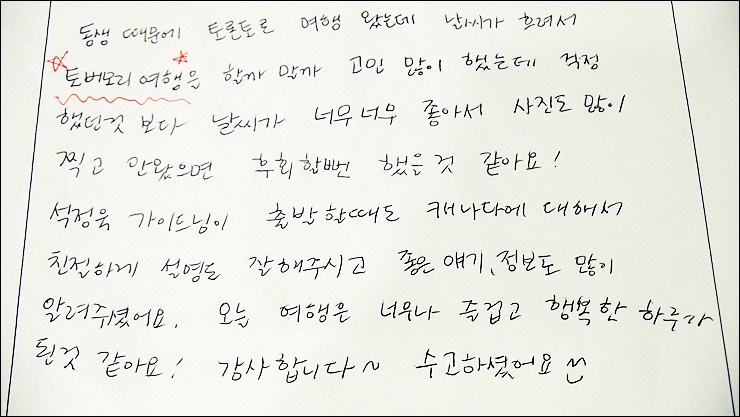 동생 때문에 토론토로 여행 왔는데 날씨가 흐려서
토버모리 여행은 할까 말까 고민 많이 했는데 걱정
했던것 보다 날씨가 너무너무 좋아서 사진도 많이
찍고 안왔으면 후회할뻔 했을것 같아요!
석정욱 가이드님이 출발할때도 캐나다에 대해서
친절하게 설명도 잘해주시고 좋은 얘기, 정보도 많이
알려주셨어요. 오늘 여행은 너무나 즐겁고 행복한 하루가
된것 같아요! 감사합니다~ 수고하셨어요